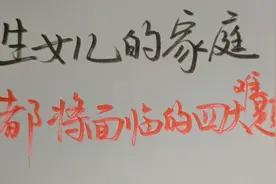 生女儿的家庭
都将面临的四大难题